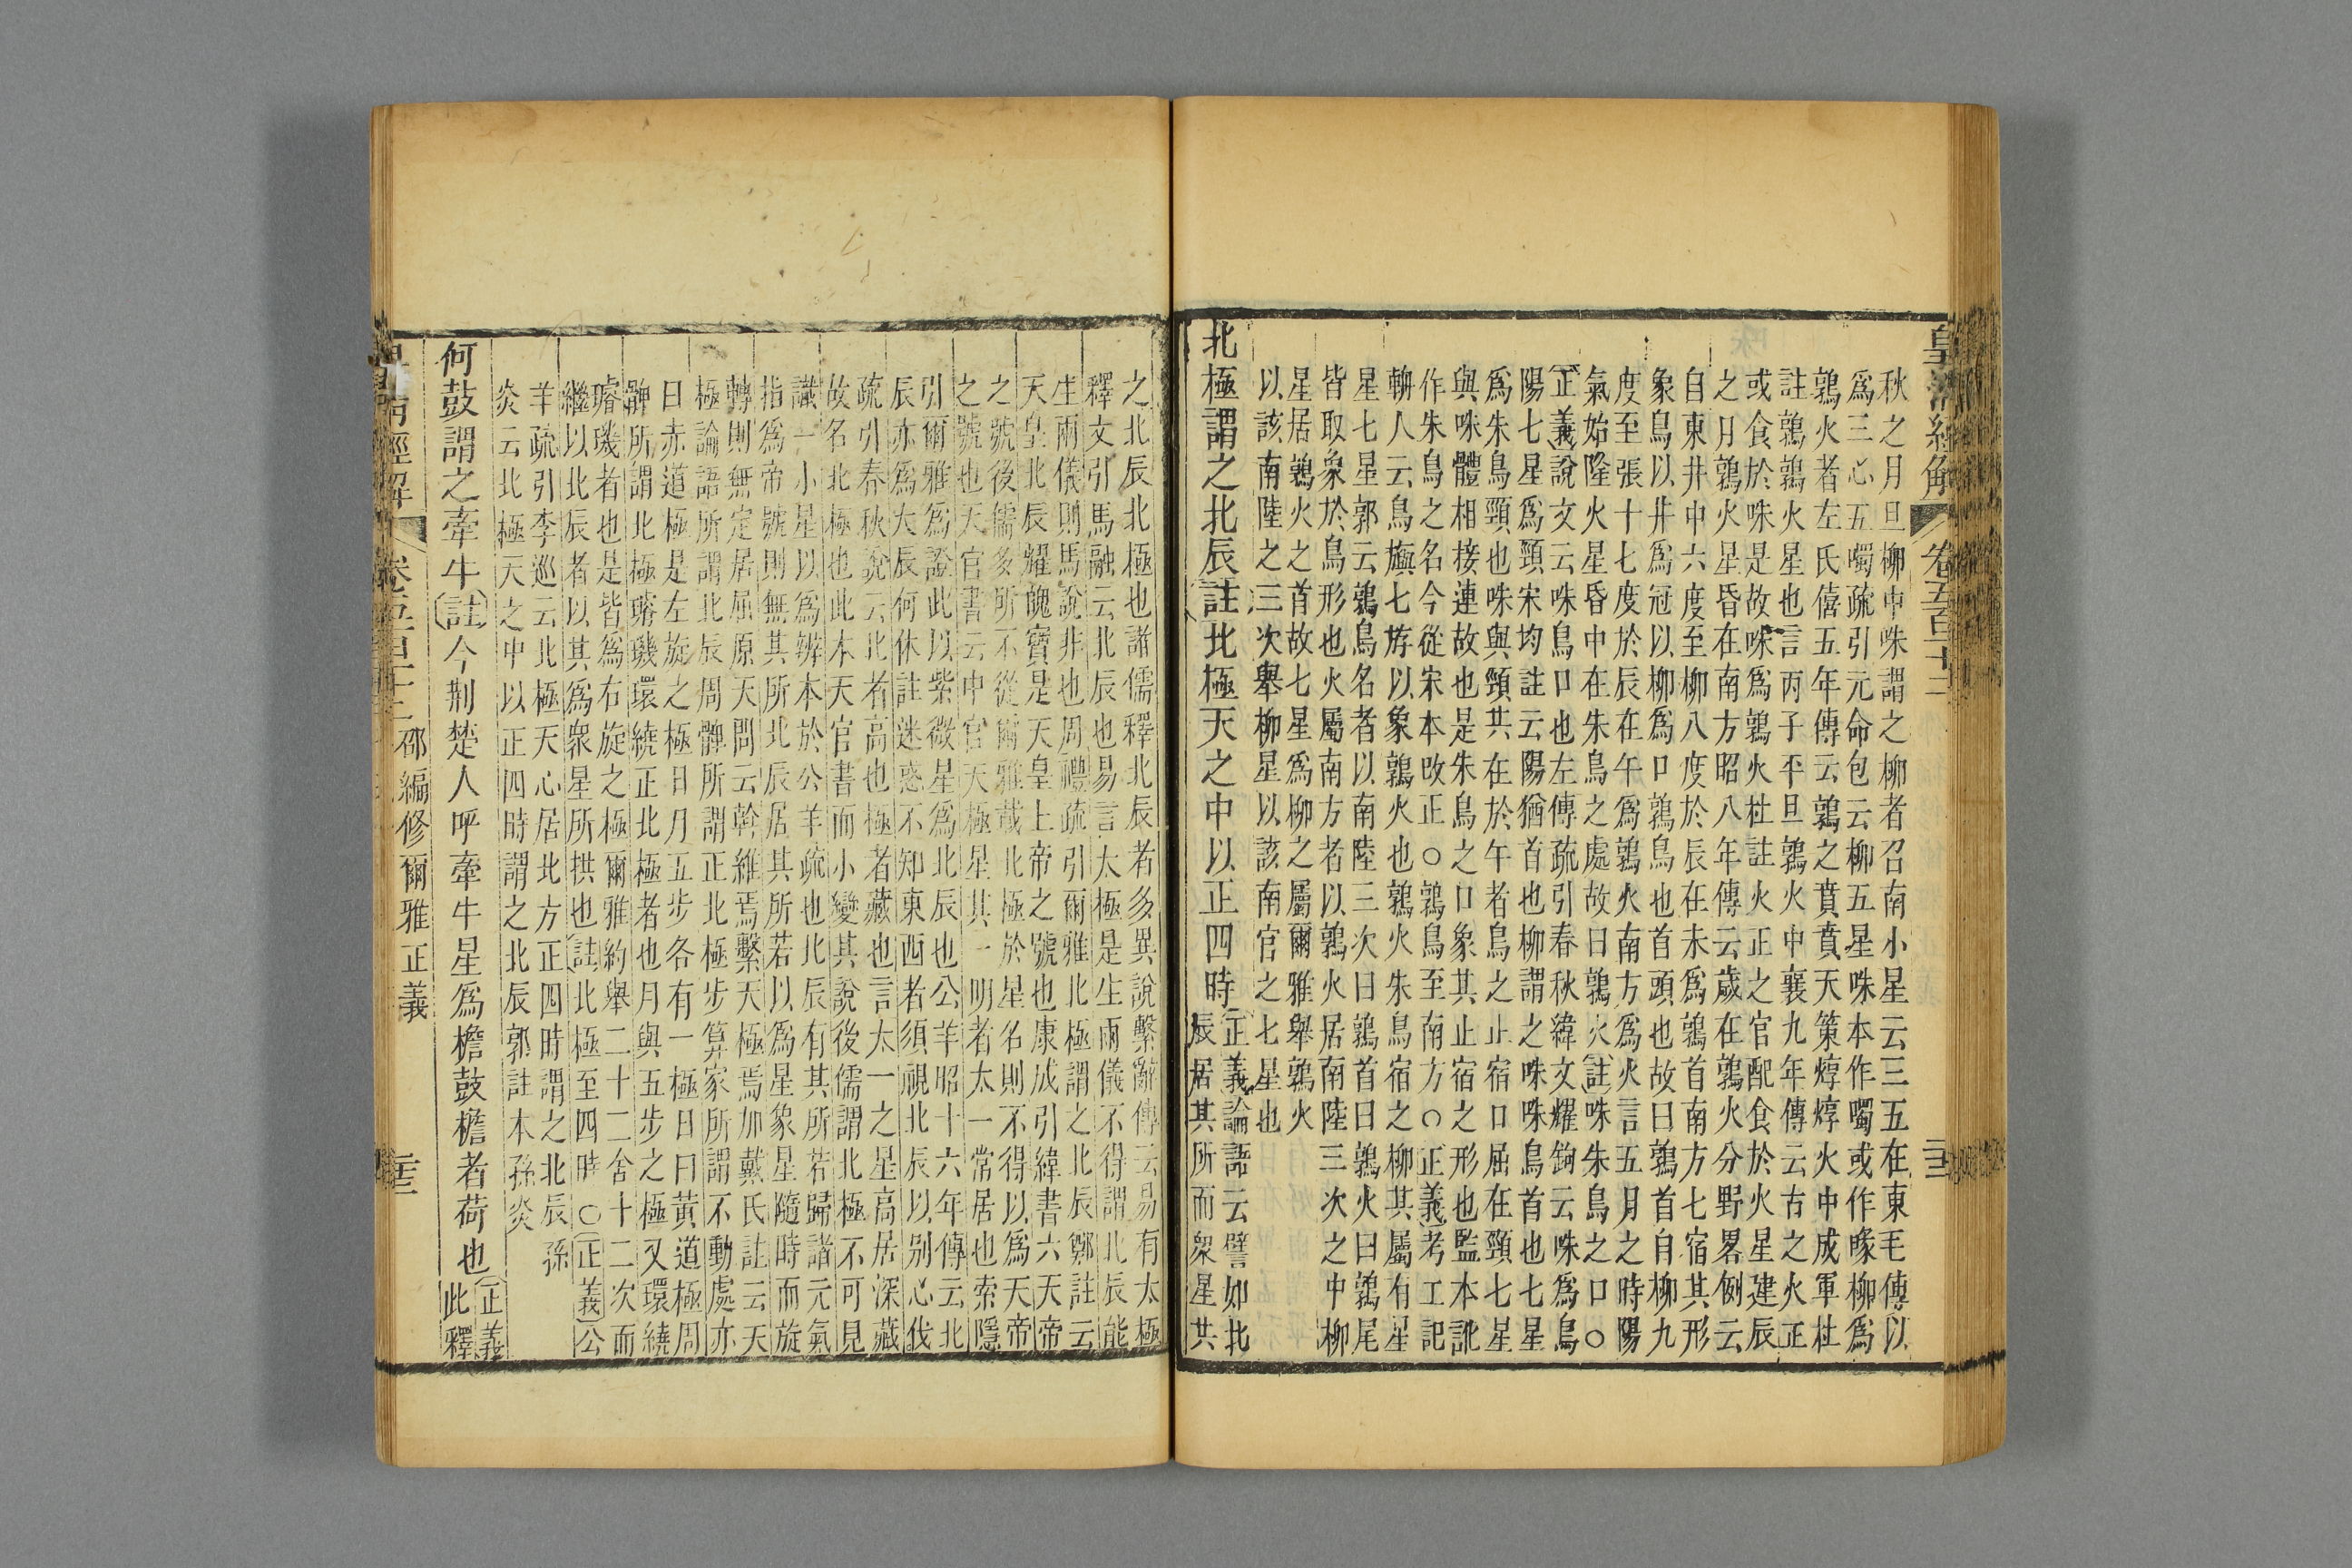 皇清經解
卷五百十三
秋之月旦柳中咮謂之柳者召南小星云三五在東毛傳以
爲三心五噣疏引元命包云柳五星咮本作噣或作喙柳爲
鶉火者左氏僖五年傳云鶉之賁賁天策焞焞火中成軍杜
註鶉鶉火星也言丙子平旦鶉火中襄九年傳云古之火正
或食於咮是故咮爲鶉火杜註火正之官配食於火星建辰
之月鶉火星昏在南方昭八年傳云歲在鶉火分野畧例云
自東井中六度至柳八度於辰在未爲鶉首南方七宿其形
象鳥以井爲冠以柳爲口鶉鳥也首頭也故曰鶉首自柳九
度至張十七度於辰在午爲鶉火南方爲火言五月之時陽
氣始隆火星昏中在朱鳥之處故曰鶉火註咮朱鳥之口○
正義說文云咮鳥口也左傳疏引春秋緯文耀鉤云咮爲鳥
陽七星爲頸宋均註云陽猶首也柳謂之咮咮鳥首也七星
爲朱鳥頸也咮與頸共在於午者鳥之止宿口屈在頸七星
與咮體相接連故也是朱鳥之口象其止宿之形也監本訛
作朱鳥之名今從宋本改正○鶉鳥至南方○正義考工記
輈人云鳥旟七斿以象鶉火也鶉火朱鳥宿之柳其屬有星
星七星郭云鶉鳥名者以南陸三次曰鶉首曰鶉火曰鶉尾
皆取象於鳥形也火屬南方者以鶉火居南陸三次之中柳
星居鶉火之首故七星爲柳之屬爾雅舉鶉火
以該南陸之三次舉柳星以該南官之七星也
北極謂之北辰註北極天之中以正四時正義論語云譬如北
辰居其所而衆星共
之北辰北極也諸儒釋北辰者多異說繫辭傳云易有太極
釋文引馬融云北辰也易言大極是生兩儀不得謂北辰能
生兩儀則馬說非也周禮疏引爾雅北極謂之北辰鄭註云
天皇北辰耀魄寶是天皇上帝之號也康成引緯書六天帝
之號後儒多所不從爾雅戴北極於星名則不得以爲天帝
之號也天官書云中官天極星其一明者太一常居也索隱
引爾雅爲證此以紫微星爲北辰也公羊昭十六年傳云北
辰亦爲大辰何休註迷惑不知東西者須視北辰以别心伐
疏引春秋說云北者高也極者藏也言太一之星高居深藏
故名北極也此本天官書而小變其說後儒謂北極不可見
識一小星以爲辨本於公羊疏也北辰有其所若歸諸元氣
指爲帝號則無其所北辰居其所若以爲星象星隨時而旋
轉則無定居屈原天問云斡維焉繫天極焉加戴氏註云天
極論語所謂北辰周髀所謂正北極步算家所謂不動處亦
曰赤道極是左旋之極日月五步各有一極日曰黃道極周
髀所謂北極璿璣環繞正北極者也月與五步之極又環繞
璿璣者也是皆爲右旋之極爾雅約舉二十二舍十二次而
繼以北辰者以其爲衆星所拱也註北極至四時○正義公
羊疏引李巡云北極天心居北方正四時謂之北辰孫
炎云北極天之中以正四時謂之北辰郭註本孫炎
何鼓謂之牽牛註今荆楚人呼牽牛星爲檐鼓檐者荷也正義
此釋
卷五百十三 邵編修爾雅正義